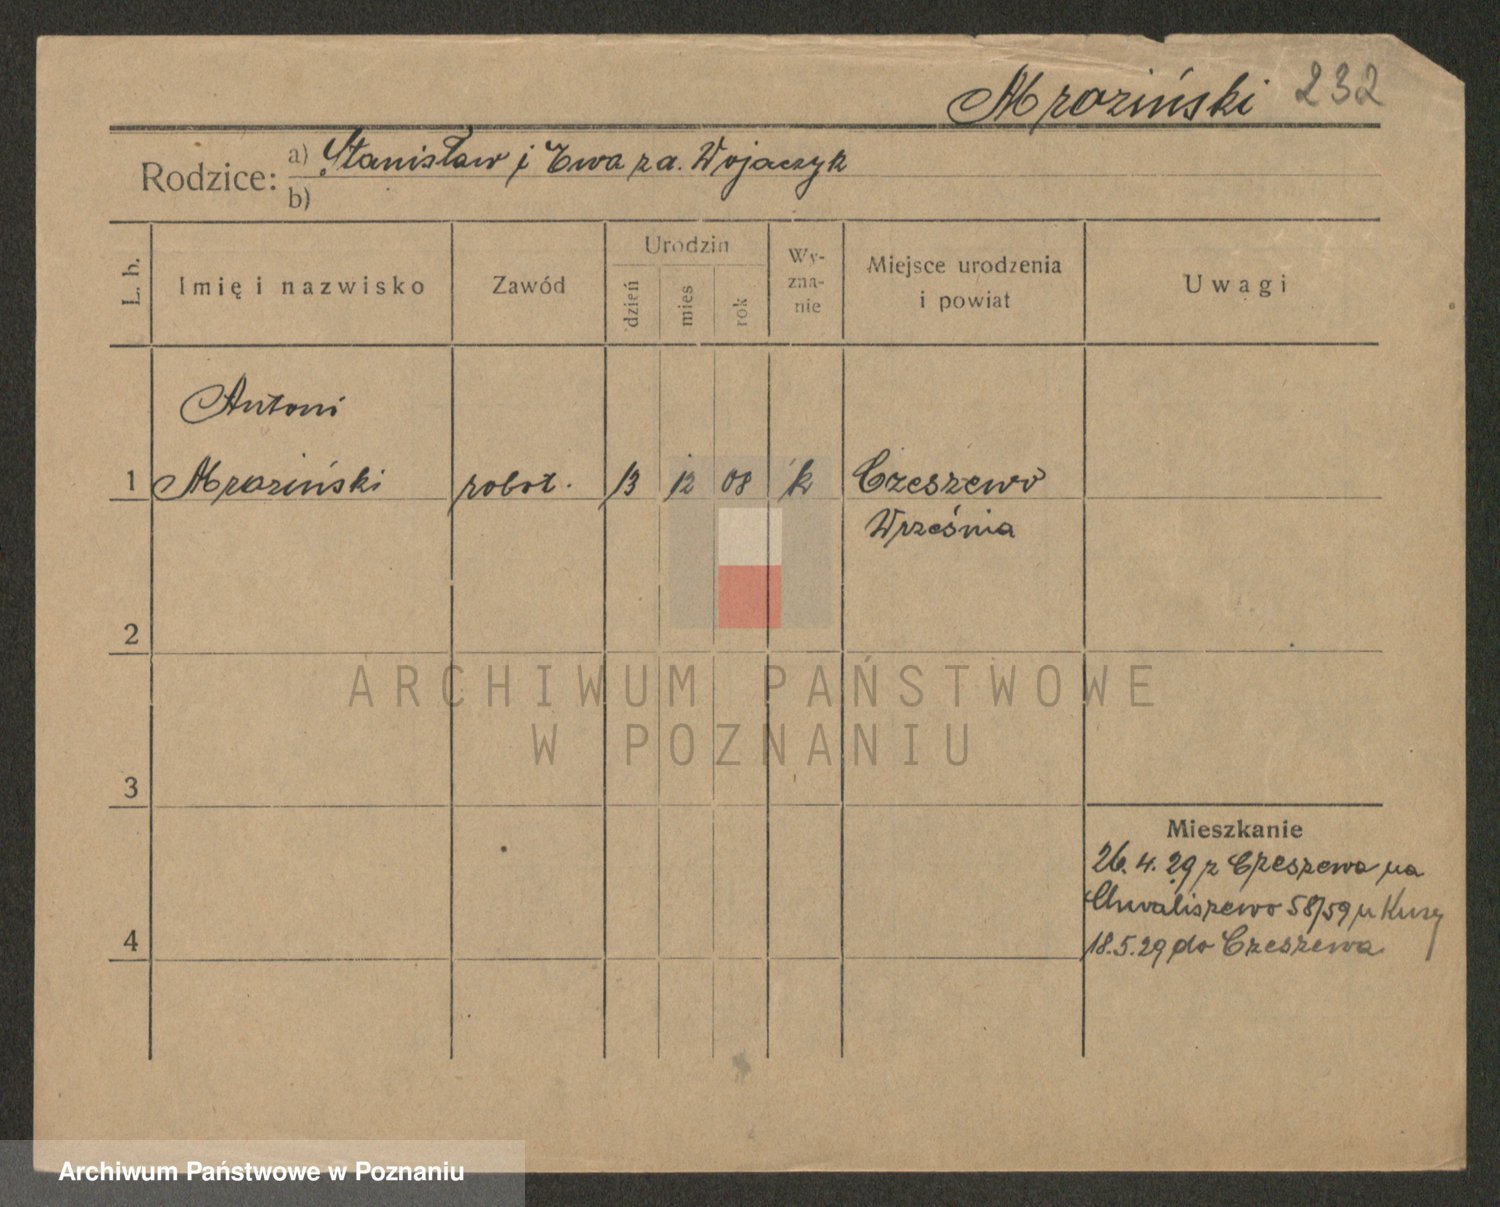 Mroziński 232
Rodzice: a) Stanisław i Ewa za. Wojaczyk
b)
L. b.
Imię i nazwisko
Zawód
Urodzin
dzień
mies
rok
Wy-
zna-
nie
Miejsce urodzenia
i powiat
Uwagi
Antoni
1 Mroziński robot. 13 12 08 k Czeszewo
Września
2
ARCHIWUM PAŃSTWOWE
W POZNANIU
3
Mieszkanie
26.4.29 z Czeszewa na
Chwaliszewo 58/59 u
4
18.5.29 do Czeszewa
Archiwum Państwowe w Poznaniu